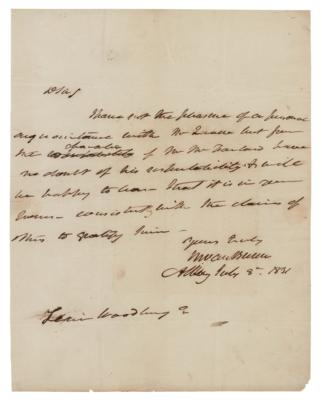 D Sir
I have not the pleasure of a personal
acquaintance with Mr but from
the character of Mr have
no doubt of his respectability & will
be happy to learn that it is in your
power consistently with the claims of
others to gratify him -
Yours truly
M Van Buren
Albany July 1831
Levi Woodbury